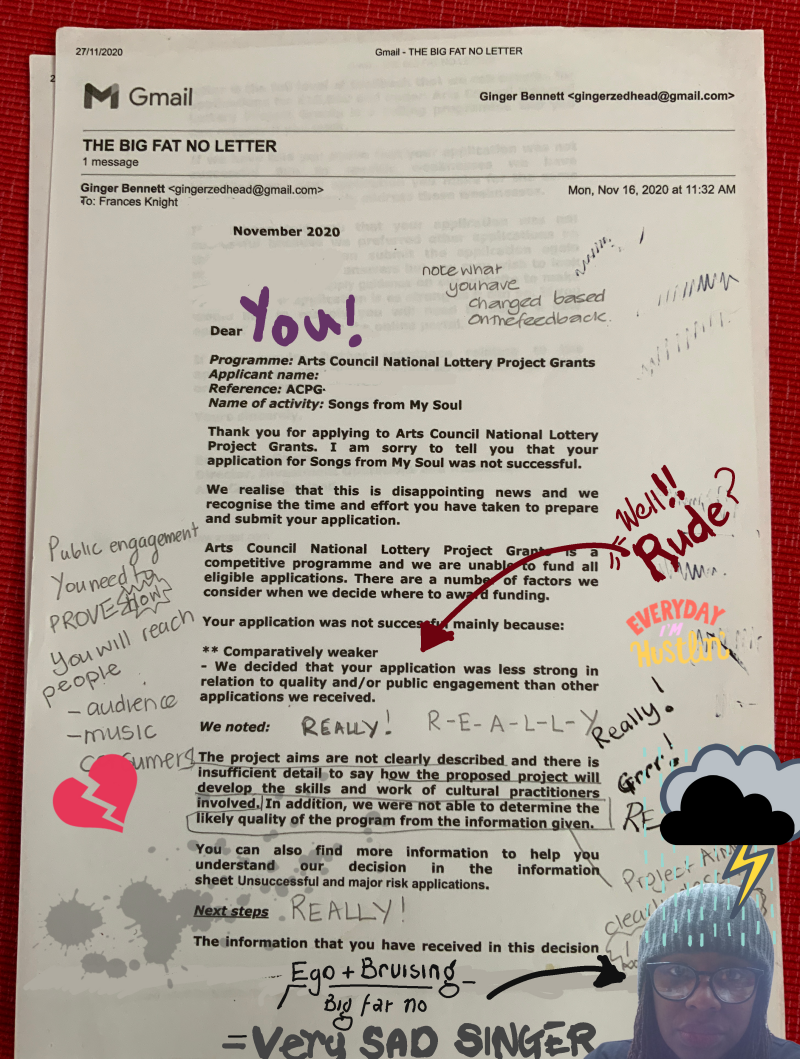 27/11/2020
Gmail - THE BIG FAT NO LETTER
Gmail
Ginger Bennett <gingerzedhead@gmail.com>
THE BIG FAT NO LETTER
1 message
Ginger Bennett <gingerzedhead@gmail.com>
Mon, Nov 16, 2020 at 11:32 AM
To: Frances Knight
November 2020
note what
you have
changed based
on the feedback.
Dear You!
Programme: Arts Council National Lottery Project Grants
Applicant name:
Reference: ACPG
Name of activity: Songs from My Soul
Thank you for applying to Arts Council National Lottery
Project Grants. I am sorry to tell you that your
application for Songs from My Soul was not successful.
We realise that this is disappointing news and we
recognise the time and effort you have taken to prepare
and submit your application.
Well!!
Rude?
Arts Council National Lottery Project Grants is a
competitive programme and we are unable to fund all
eligible applications. There are a number of factors we
consider when we decide where to award funding.
Public engagement
You need to
PROVE
How
You will reach
people
- audience
- music
consumers
Your application was not successful mainly because:
EVERYDAY
I'M
Hustlin'
** Comparatively weaker
- We decided that your application was less strong in
relation to quality and/or public engagement than other
applications we received.
We noted: REALLY! R-E-A-L-L-Y
Really!
Grrr!
The project aims are not clearly described and there is
insufficient detail to say how the proposed project will
develop the skills and work of cultural practitioners
involved. In addition, we were not able to determine the
likely quality of the program from the information given.
You can also find more information to help you
understand our decision in the information
sheet Unsuccessful and major risk applications.
Project Aims
Next steps REALLY!
The information that you have received in this decision
Ego + Bruising
Big far no
= Very SAD SINGER